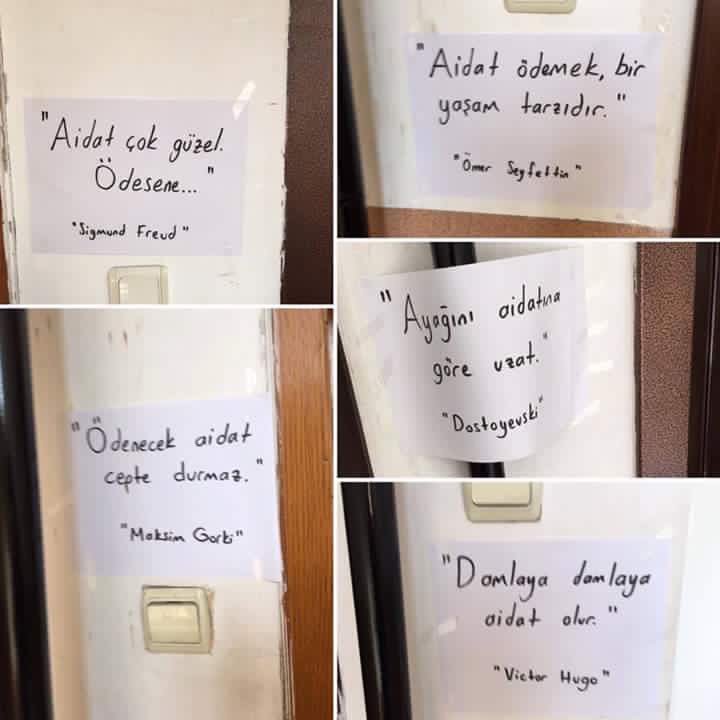 "Aidat çok güzel.
Ödesene..."
"Sigmund Freud"
"Aidat ödemek, bir
yaşam tarzıdır."
"Ömer Seyfettin"
"Ayağını aidatına
göre uzat."
"Dostoyevski"
"Ödenecek aidat
cepte durmaz."
"Maksim Gorki"
"Damlaya damlaya
aidat olur."
"Victor Hugo"